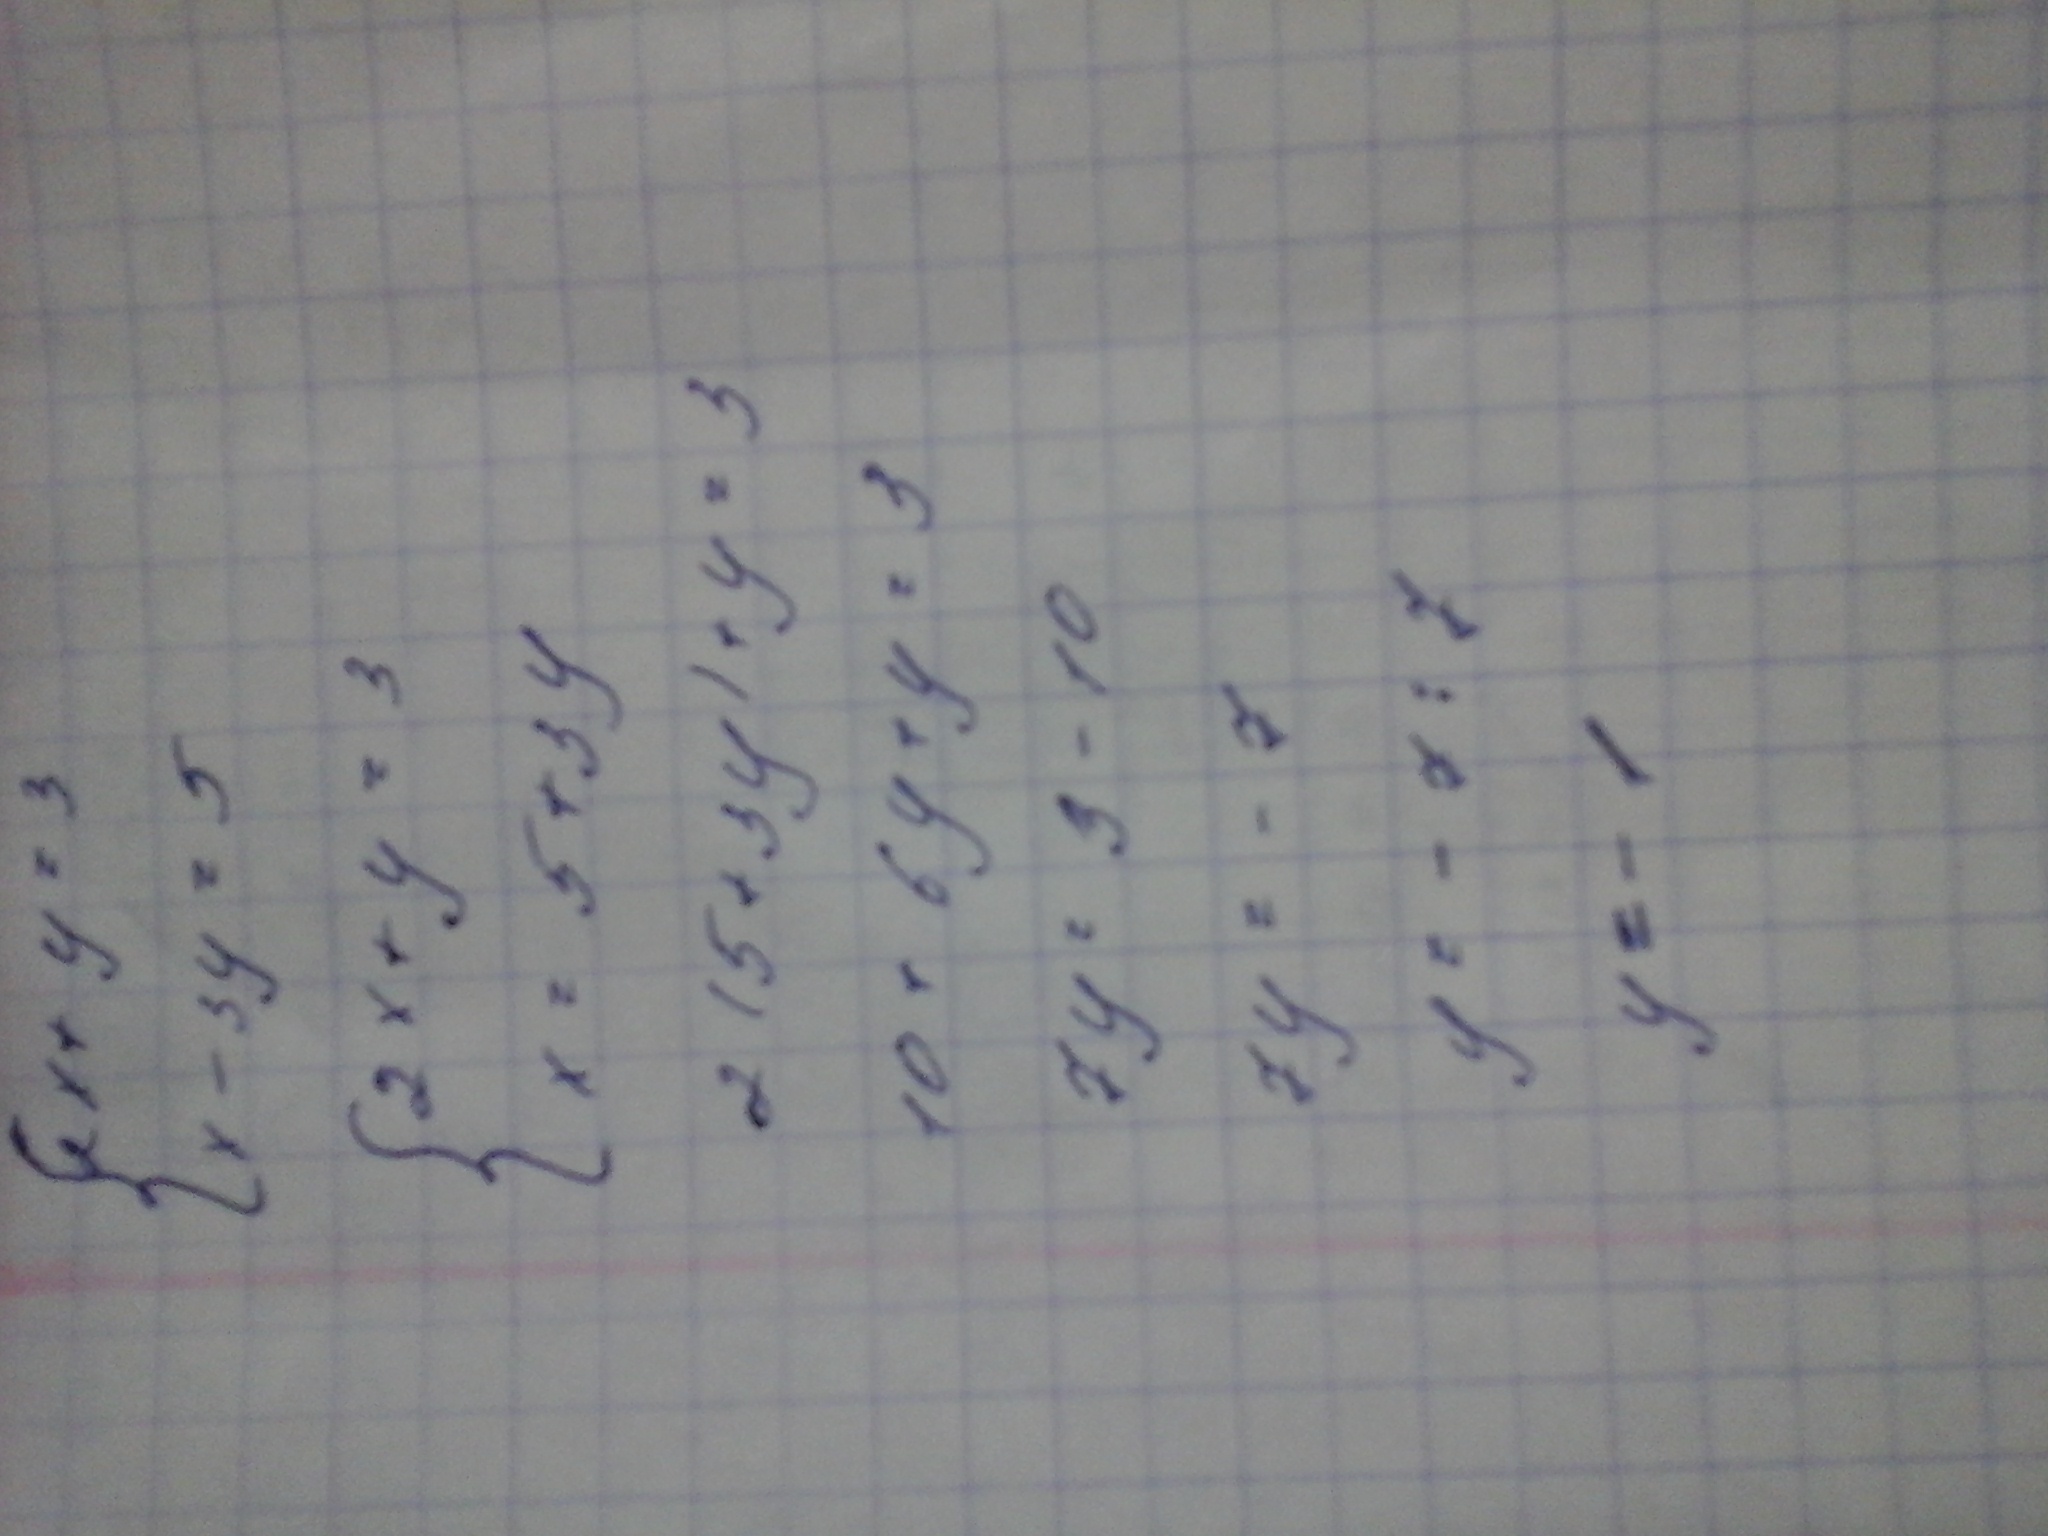 {2x+y=3
x-3y=5
{2x+y=3
x=5+3y
2(5+3y)+y=3
10+6y+y=3
7y=3-10
7y=-7
y=-7:7
y=-1